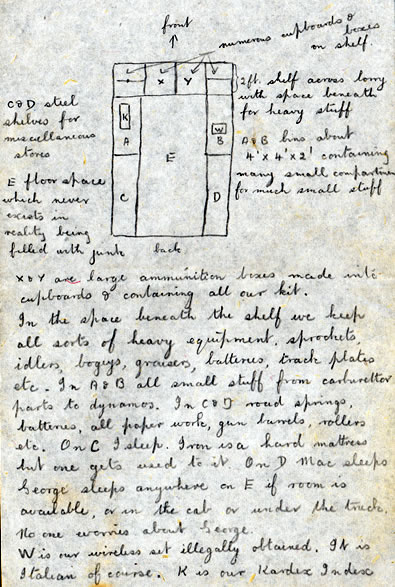 front
numerous cupboards & boxes
on shelf
X
Y
2ft. shelf across lorry
with space beneath
for heavy stuff
C & D steel
shelves for
miscellaneous
stores
K
A
W
B
A & B bins about
4' x 4' x 2' containing
many small compartments
for much small stuff
E
E floor space
which never
exists in
reality being
filled with junk
C
D
back
X & Y are large ammunition boxes made into
cupboards & containing all our kit.
In the space beneath the shelf we keep
all sorts of heavy equipment, sprockets,
idlers, bogeys, greasers, batteries, track plates
etc. In A & B all small stuff from carburettor
parts to dynamos. In C & D road springs,
batteries, all paper work, gun barrels, rollers
etc. On C I sleep. Iron is a hard mattress
but one gets used to it. On D Mac sleeps
George sleeps anywhere on E if room is
available, or in the cab or under the truck.
No one worries about George.
W is our wireless set illegally obtained. It is
Italian of course. K is our Kardex Index